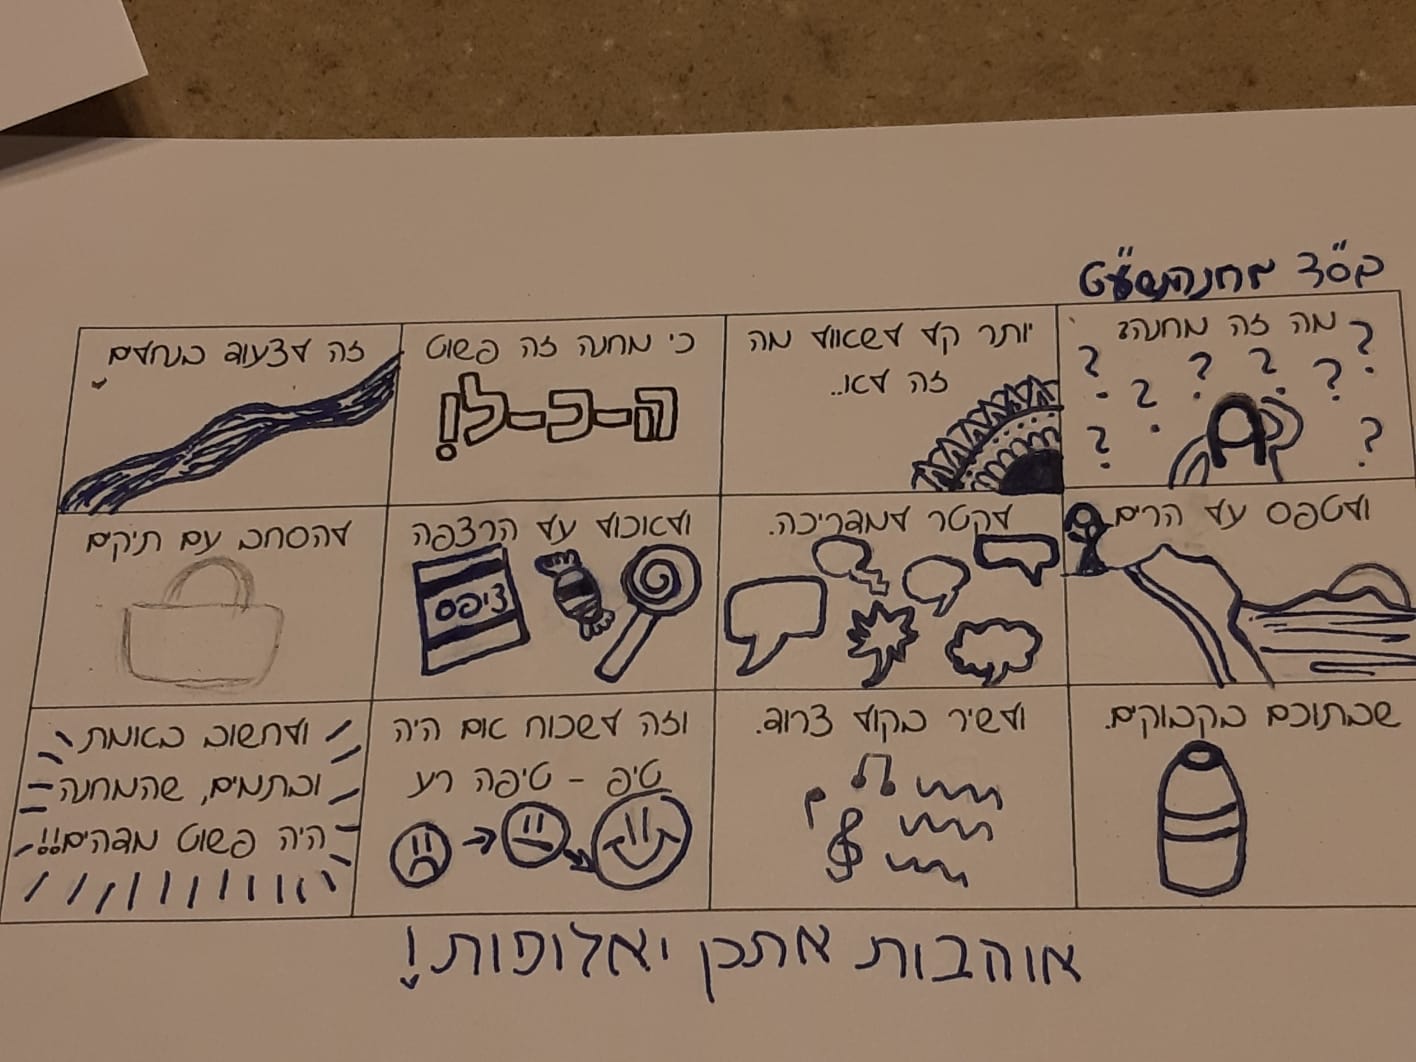 בס"ד מחנה תשע"ט
מה זה מחנה?
יותר קל לשאול מה
זה לא..
כי מחנה זה פשוט
ה-כ-ל!
זה לצעוד בנחלים
ולטפס על הרים
לקטר למדריכה.
ולאכול על הרצפה
ציפס
להסחב עם תיקים
שבתוכם בקבוקים.
ולשיר בקול צרוד.
וזה לשכוח אם היה
טיפ - טיפה רע
ולחשוב באמת
ובתמים, שהמחנה
היה פשוט מדהים!!
אוהבות אתכן יאלופות!